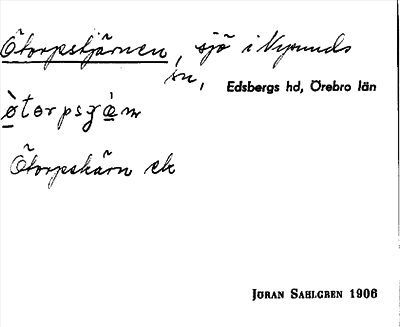 Ötorpstjärnen, sjö i Nysunds
sn, Edsbergs hd, Örebro län
Ötorpskärn ek
JÖRAN SAHLGREN 1906